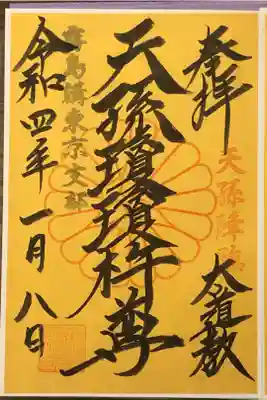 奉拝
天孫降臨
大道教
天孫瓊瓊杵尊
霧島講東京支部
令和四年一月八日